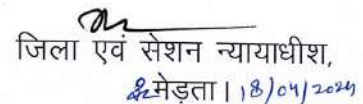 जिला एवं सेशन न्यायाधीश,
मेड़ता। 18/04/2024